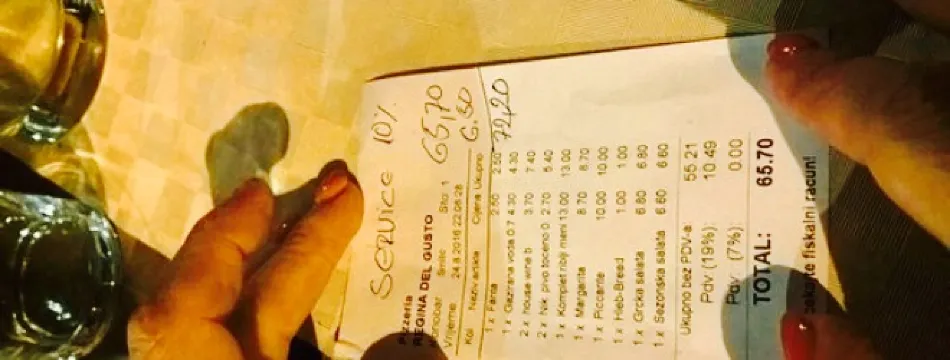 SERVICE 10%
65,70
6.50
72,20
Pizzeria
REGINA DEL GUSTO
Konobar Sto: 1
Vrijeme 24.8.2016 22:08:28
Kol Naziv artikla Cijena Ukupno
1 x Fanta 2.50 2.50
1 x Gazirana voda 0.7 4.30 4.30
2 x house wine b 3.70 7.40
2 x Nik pivo toceno 0 2.70 5.40
1 x Komplet riblji meni 13.00 13.00
1 x Margarita 8.70 8.70
1 x Piccante 10.00 10.00
1 x Hleb-Bread 1.00 1.00
1 x Grcka salata 6.80 6.80
1 x Sezonska salata 6.60 6.60
Ukupno bez PDV-a: 55.21
Pdv. (19%): 10.49
Pdv. (7%): 0.00
TOTAL: 65.70
fiskalni racun!